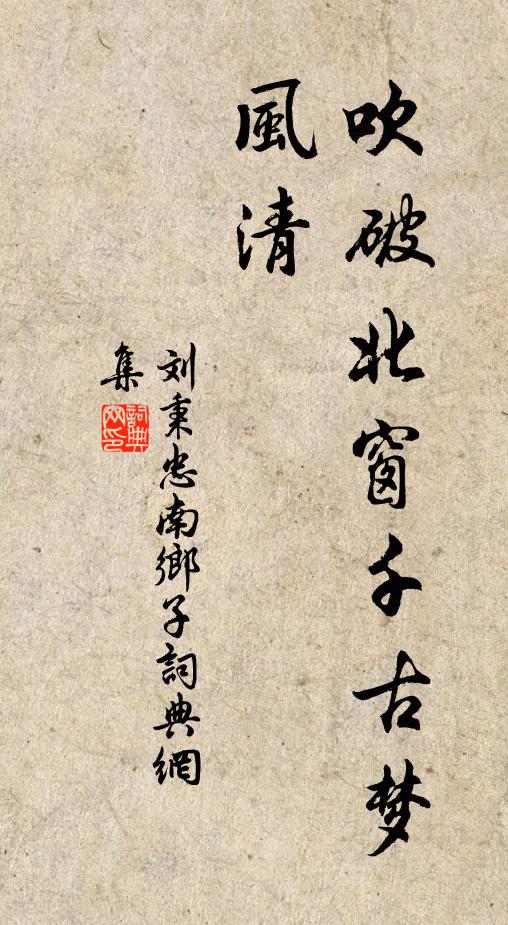 吹破北窗千古梦
風清
刘秉忠南鄉子詞典網
集
詞典
网印